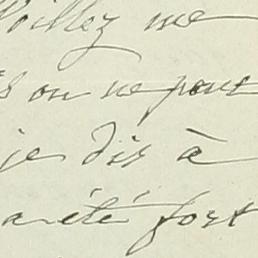 Veuillez me
on ne peut
je dis à
a été fort